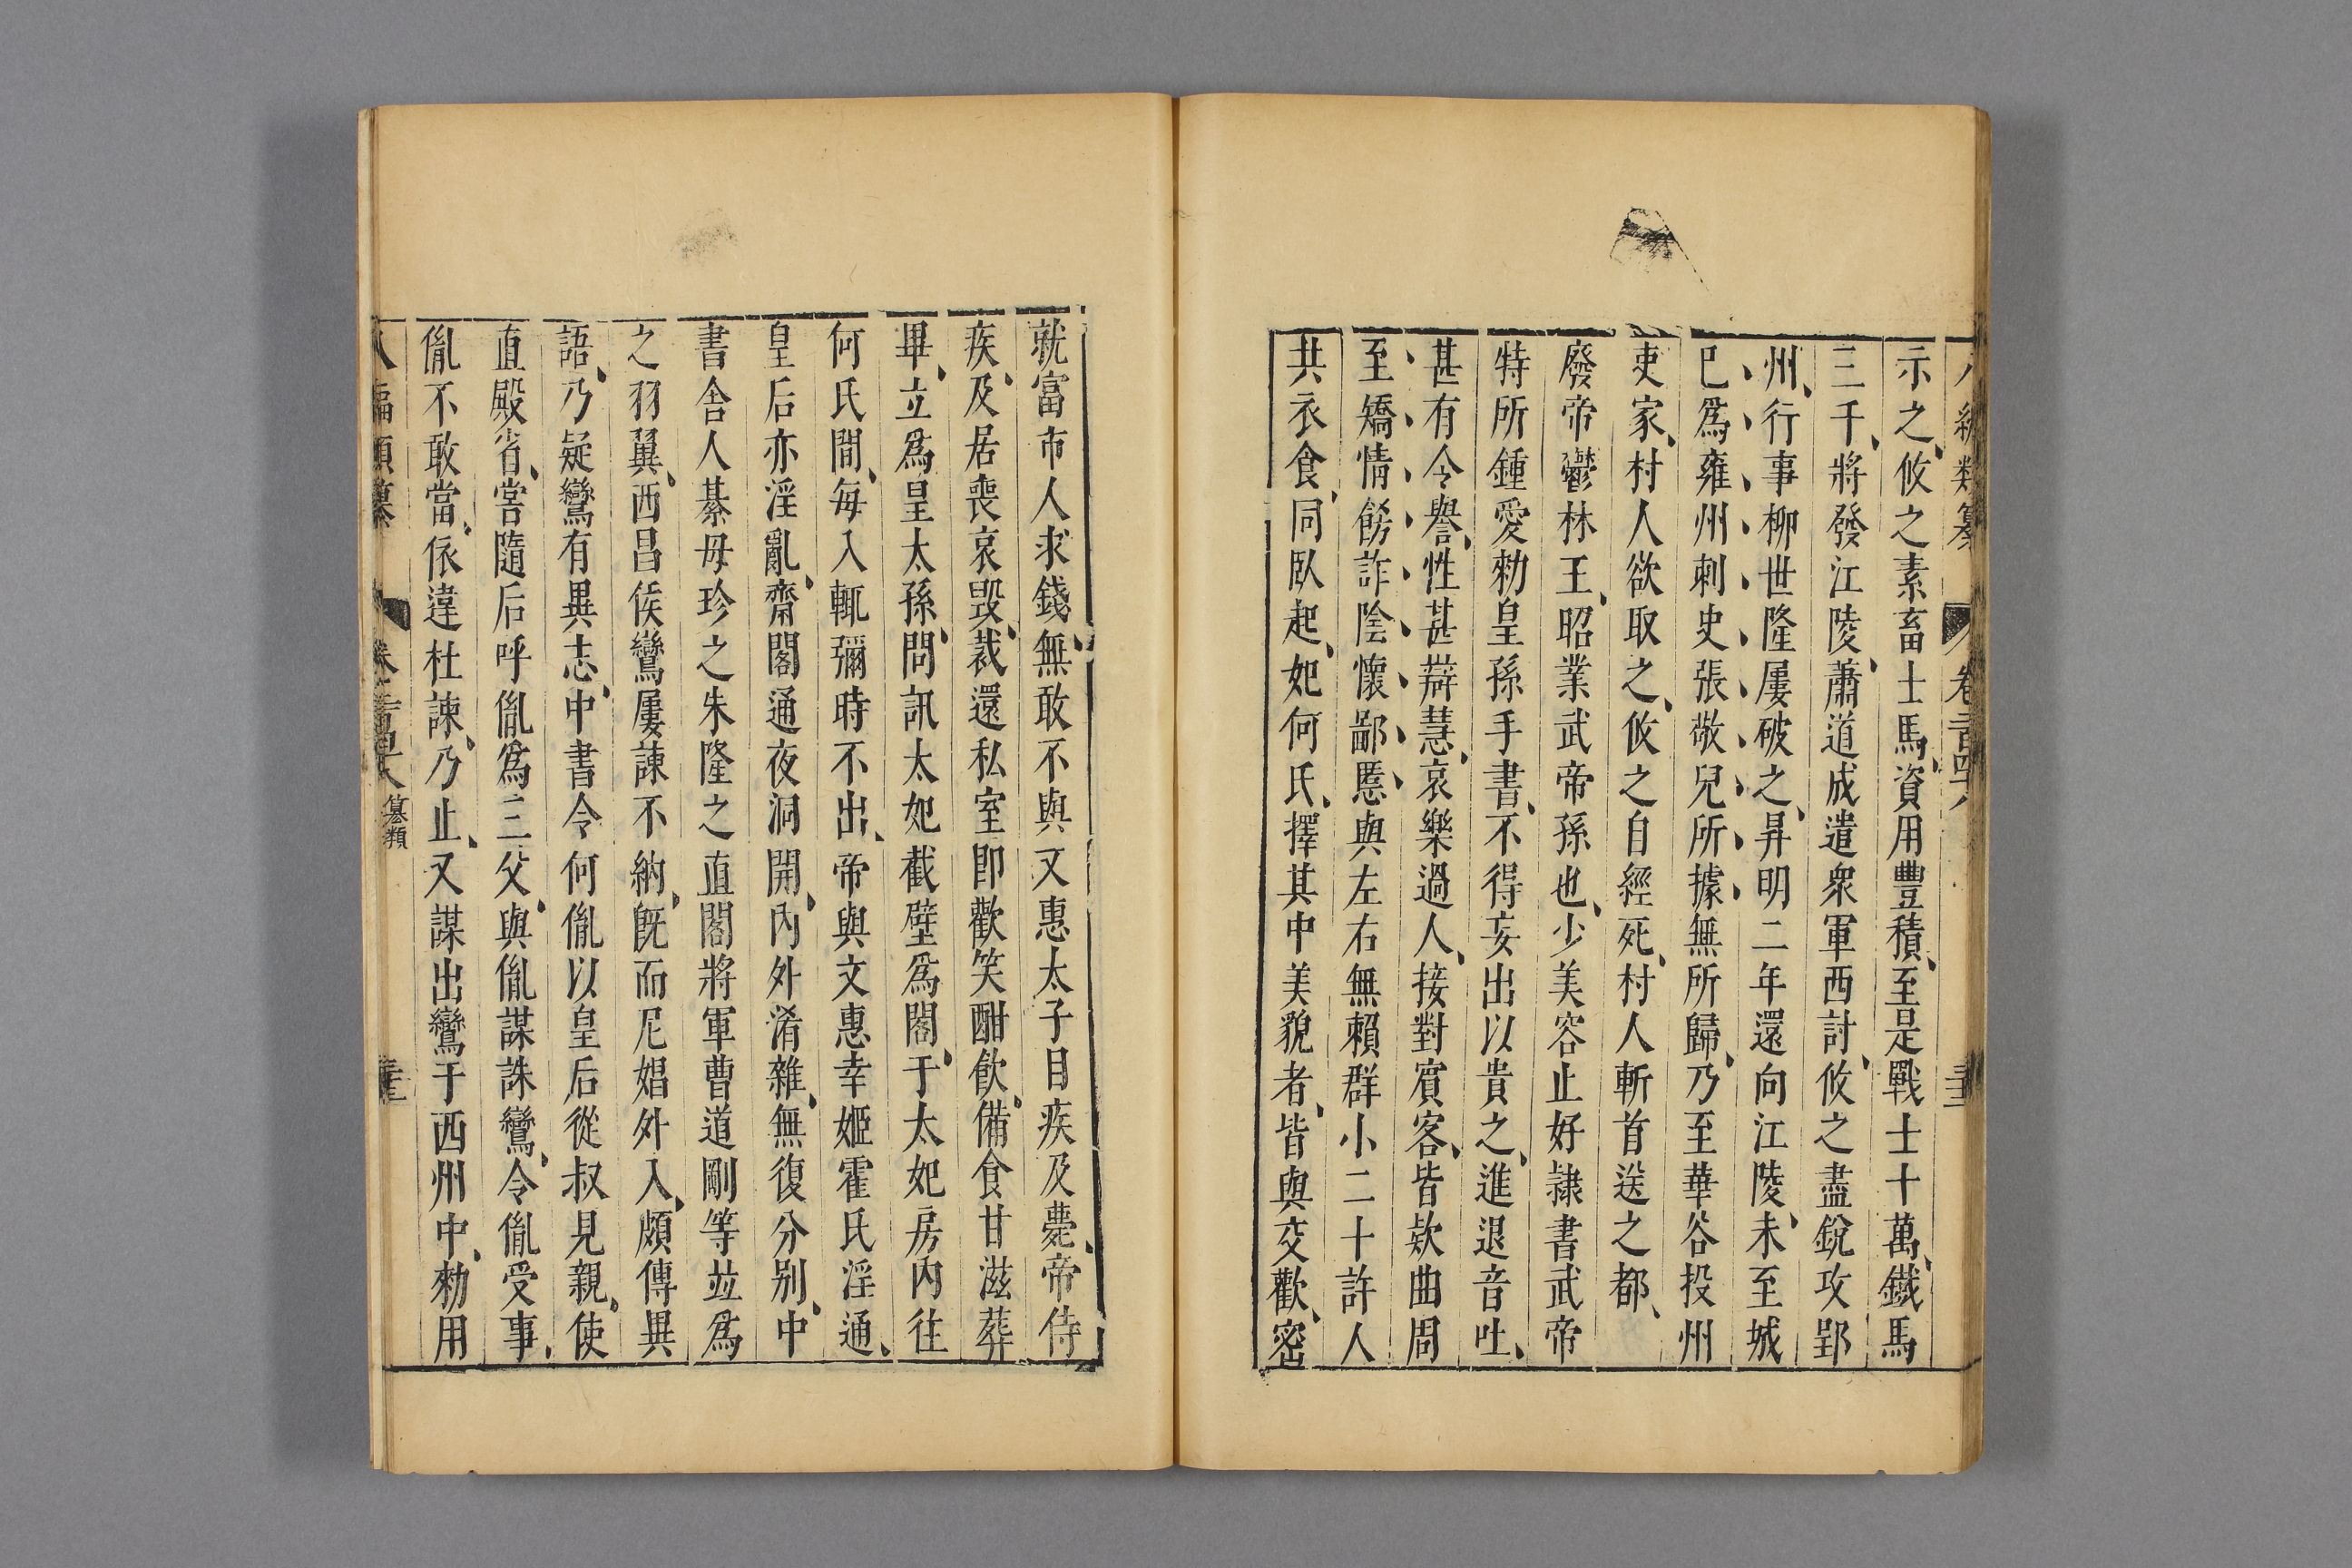 示之攸之素畜士馬資用豐積至是戰士十萬鐵馬
三千將發江陵蕭道成遣衆軍西討攸之盡銳攻郢
州行事柳世隆屢破之昇明二年還向江陵未至城
巳爲雍州刺史張敬兒所據無所歸乃至華谷投州
吏家村人欲取之攸之自經死村人斬首送之都
廢帝鬱林王昭業武帝孫也少美容止好隷書武帝
特所鍾愛勑皇孫手書不得妄出以貴之進退音吐
甚有令譽性甚辯慧哀樂過人接對賓客皆欵曲周
至矯情餝詐陰懷鄙慝與左右無賴群小二十許人
共衣食同臥起妃何氏擇其中美貌者皆與交歡密
就富市人求錢無敢不與文惠太子目疾及薨帝侍
疾及居喪哀毀裁還私室即歡笑酣飮備食甘滋葬
畢立爲皇太孫問訊太妃截壁爲閣于太妃房內往
何氏間每入輒彌時不出帝與文惠幸姬霍氏淫通
皇后亦淫亂齋閣通夜洞開內外淆雜無復分別中
書舍人綦母珍之朱隆之直閣將軍曹道剛等竝爲
之羽翼西昌侯鸞屢諫不納旣而尼媪外入頗傳異
語乃疑鸞有異志中書令何胤以皇后從叔見親使
直殿省嘗隨后呼胤爲三父與胤謀誅鸞令胤受事
胤不敢當依違杜諫乃止又謀出鸞于西州中勑用